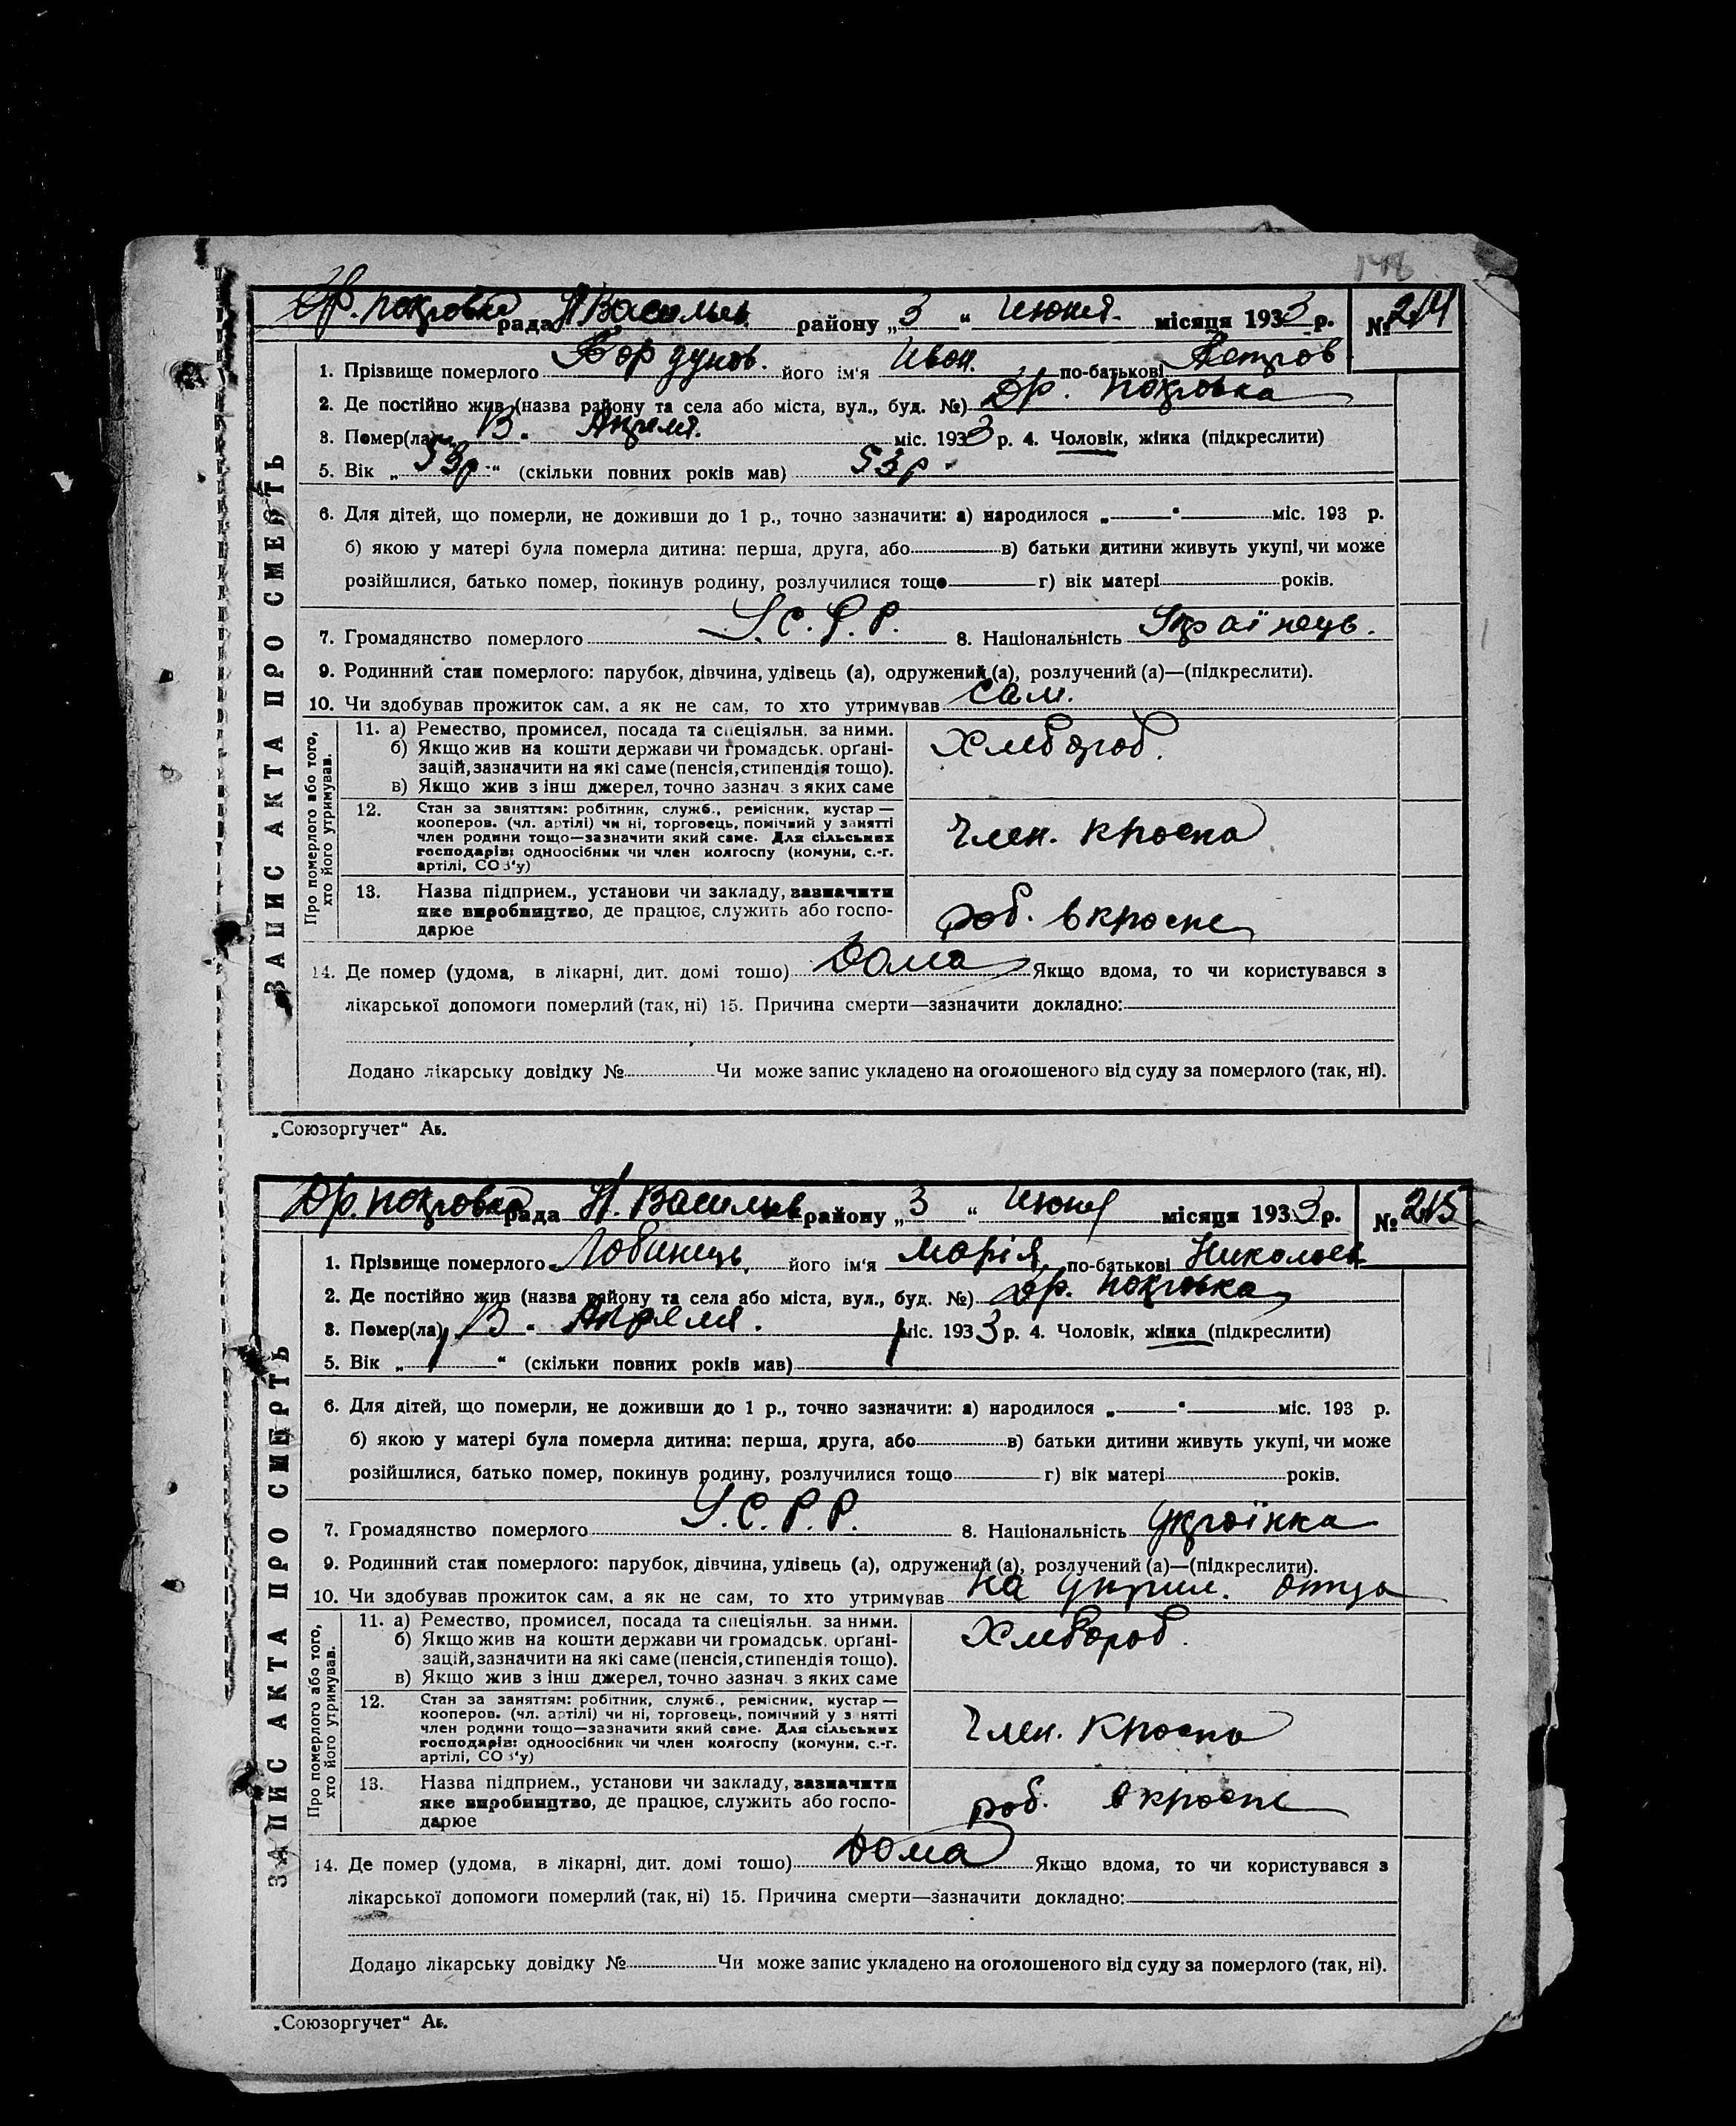 148
Др. покровка рада Н Васильев. району „3“ Июня. місяця 1933 р. № 214
1. Прізвище померлого Бордунов. його ім'я Иван. по-батькові Петров
2. Де постійно жив (назва району та села або міста, вул., буд. №) Др. покровка
3. Помер(ла) „ В “ Апреля. міс. 1933 р. 4. Чоловік, жінка (підкреслити)
5. Вік „ 53р. “ (скільки повних років мав) 53р.
6. Для дітей, що померли, не доживши до 1 р., точно зазначити: а) народилося „ “ міс. 193 р.
б) якою у матері була померла дитина: перша, друга, або в) батьки дитини живуть укупі, чи може
розійшлися, батько помер, покинув родину, розлучилися тощо г) вік матері років.
7. Громадянство померлого У.С.Р.Р. 8. Національність Українець.
9. Родинний стан померлого: парубок, дівчина, удівець (а), одружений (а), розлучений (а)—(підкреслити).
10. Чи здобував прожиток сам, а як не сам, то хто утримував сам.
Про померлого або того,
хто його утримував.
11. а) Ремество, промисел, посада та спеціяльн. за ними.
б) Якщо жив на кошти держави чи громадськ. орґані-
зацій, зазначити на які саме (пенсія, стипендія тощо).
в) Якщо жив з інш джерел, точно зазнач. з яких саме
Хлебороб.
12. Стан за заняттям: робітник, служб., ремісник, кустар —
кооперов. (чл. артілі) чи ні, торговець, помічний у занятті
член родини тощо—зазначити який саме. Для сільських
господарів: одноосібник чи член колгоспу (комуни, с.-г.
артілі, СОЗ'у)
Член.
13. Назва підприєм., установи чи закладу, зазначити
яке виробництво, де працює, служить або госпо-
дарює
роб. в
14. Де помер (удома, в лікарні, дит. домі тошо) Дома Якщо вдома, то чи користувався з
лікарської допомоги померлий (так, ні) 15. Причина смерти—зазначити докладно:
Додано лікарську довідку № Чи може запис укладено на оголошеного від суду за померлого (так, ні).
ЗАПИС АКТА ПРО СМЕРТЬ
„Союзоргучет“ Аб.
Др. покровка рада Н. Васильев району „3“ Июня місяця 1933 р. № 215
1. Прізвище померлого Ловинець, його ім'я Марія по-батькові Николаев
2. Де постійно жив (назва району та села або міста, вул., буд. №) Др. покровка
3. Помер(ла) „ В “ Апреля. міс. 1933 р. 4. Чоловік, жінка (підкреслити)
5. Вік „ “ (скільки повних років мав)
6. Для дітей, що померли, не доживши до 1 р., точно зазначити: а) народилося „ “ міс. 193 р.
б) якою у матері була померла дитина: перша, друга, або в) батьки дитини живуть укупі, чи може
розійшлися, батько помер, покинув родину, розлучилися тощо г) вік матері років.
7. Громадянство померлого У.С.Р.Р. 8. Національність українка
9. Родинний стан померлого: парубок, дівчина, удівець (а), одружений (а), розлучений (а)—(підкреслити).
10. Чи здобував прожиток сам, а як не сам, то хто утримував на отца
Про померлого або того,
хто його утримував.
11. а) Ремество, промисел, посада та спеціяльн. за ними.
б) Якщо жив на кошти держави чи громадськ. орґані-
зацій, зазначити на які саме (пенсія, стипендія тощо).
в) Якщо жив з інш джерел, точно зазнач. з яких саме
Хлебороб.
12. Стан за заняттям: робітник, служб., ремісник, кустар —
кооперов. (чл. артілі) чи ні, торговець, помічний у занятті
член родини тощо—зазначити який саме. Для сільських
господарів: одноосібник чи член колгоспу (комуни, с.-г.
артілі, СОЗ'у)
Член.
13. Назва підприєм., установи чи закладу, зазначити
яке виробництво, де працює, служить або госпо-
дарює
роб. в
14. Де помер (удома, в лікарні, дит. домі тошо) Дома Якщо вдома, то чи користувався з
лікарської допомоги померлий (так, ні) 15. Причина смерти—зазначити докладно:
Додано лікарську довідку № Чи може запис укладено на оголошеного від суду за померлого (так, ні).
ЗАПИС АКТА ПРО СМЕРТЬ
„Союзоргучет“ Аб.